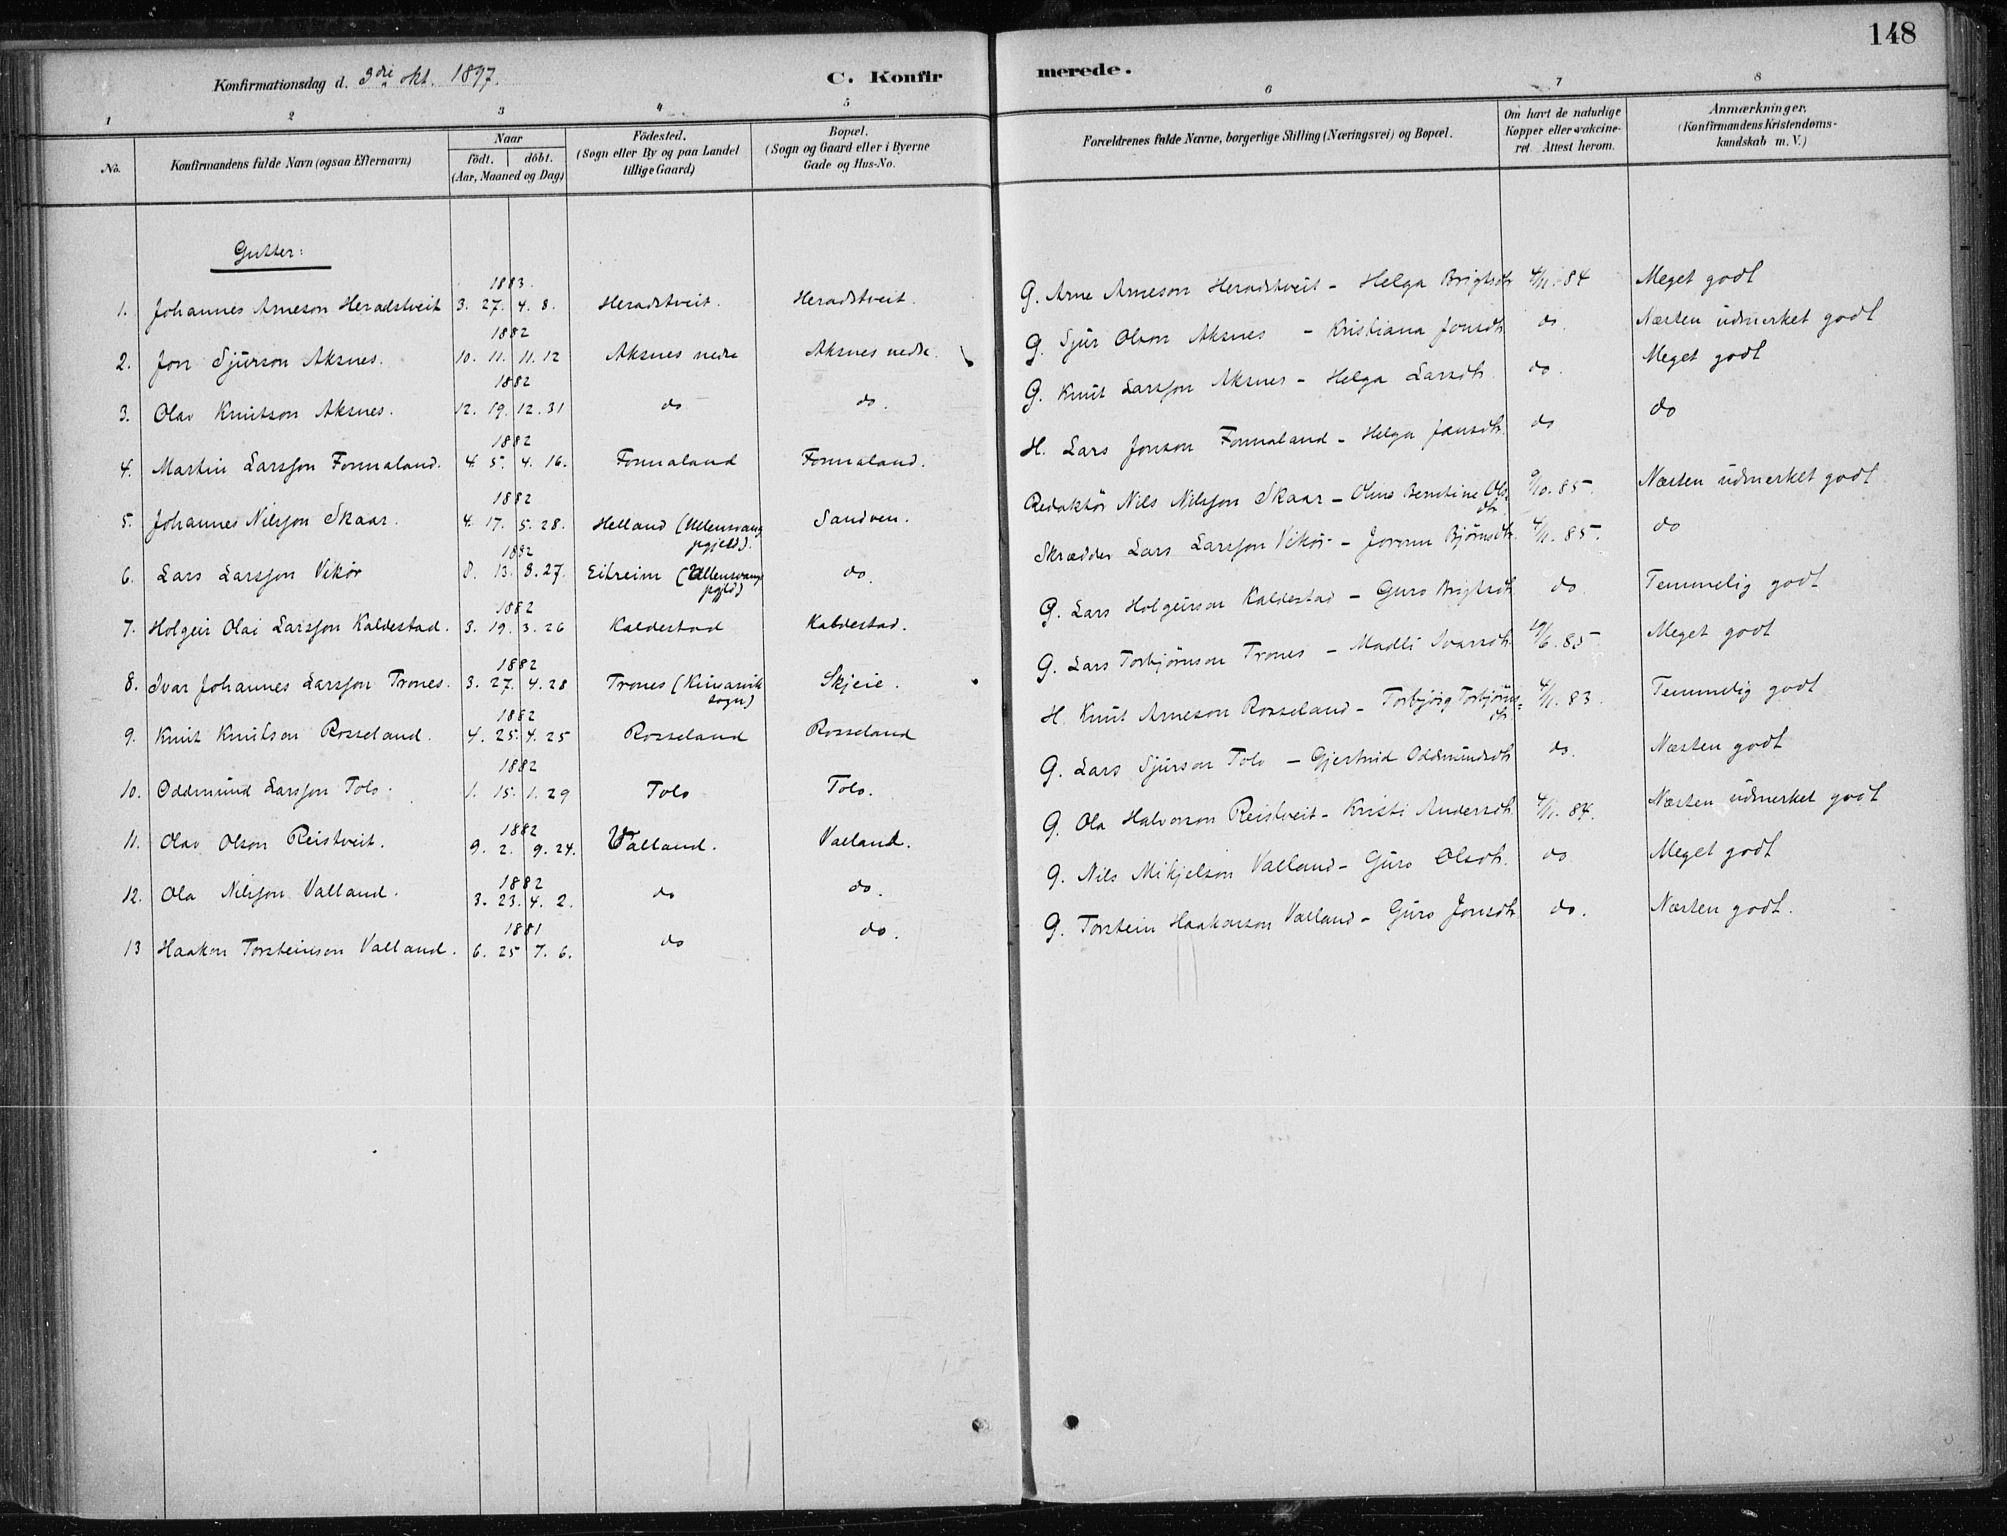 148
Konfirmationsdag d. 3die okt. 1897.
C. Konfirmerede.
1 2 3 4 5 6 7 8
No.
Konfirmandens fulde Navn (ogsaa Efternavn)
Naar
födt. döbt.
(Aar, Maaned og Dag)
Födested.
(Sogn eller By og paa Landet
tillige Gaard)
Bopæl.
(Sogn og Gaard eller i Byerne
Gade og Hus-No.
Forældrenes fulde Navne, borgerlige Stilling (Næringsvei) og Bopæl.
Om havt de naturlige
Kopper eller vakcine-
ret. Attest herom.
Anmærkninger.
(Konfirmandens Kristendoms-
kundskab m. V.)
Gutter:
1883.
1. Johannes Arneson Heradstveit 3. 27. 4. 8. Heradstveit. Heradstveit. G. Arne Arneson Heradstveit - Helga Brigtsdtr 4/11. 84 Meget godt
1882
2. Jon Sjurson Aksnes. 10. 11. 11. 12 Aksnes nedre Aksnes nedre. G. Sjur Olson Aksnes - Kristiana Jonsdtr do. Næsten udmerket godt
1882
3. Olav Knutson Aksnes. 12. 19. 12. 31 do do. G. Knut Larsson Aksnes - Helga Larsdtr. do. Meget godt
1882
4. Martin Larsson Fonnaland. 4. 5. 4. 16. Fonnaland Fonnaland. H. Lars Jonson Fonnaland - Helga Jansdtr. do do
1882
5. Johannes Nilsson Skaar. 4. 17. 5. 28. Helland (Ullensvang pgjeld). Sandven. Redaktör Nils Nilsson Skaar - Oline Berntine Olsdtr 9/10. 85. Næsten udmerket godt
1882
6. Lars Larsson Vikör 8. 13. 8. 27. Eitreim (Ullensvang pgjld) do. Skrædder Lars Larsson Vikör - Jorunn Bjørnsdtr. 4/11. 85. do
1882
7. Holgeir Olai Larsson Kaldestad. 3. 19. 3. 26 Kaldestad Kaldestad. G. Lars Holgeirson Kaldestad - Guro Brigtsdtr do. Temmelig godt
1882
8. Ivar Johannes Larsson Trones. 3. 27. 4. 28 Trones (Kinsarvik sogn) Skjeie. G. Lars Torbjørnson Trones - Madli Ivarsdtr /6. 85 Meget godt
1882
9. Knut Knutson Rosseland. 4. 25. 4. 25 Rosseland Rosseland H. Knut Arneson Rosseland - Torbjørg Torbjørnsdtr. 4/11. 83. Temmelig godt
1882
10. Oddmund Larsson Tolo. 1. 15. 1. 29 Tolo Tolo. G. Lars Sjurson Tolo - Gjertrud Oddmundsdtr do. Næsten godt
1882
11. Olav Olson Reistveit. 9. 2. 9. 24. Valland. Valland. G. Ola Halvorson Reistveit - Kristi Andersdtr 4/11. 84. Næsten udmerket godt
1882
12. Ola Nilsson Valland. 3. 23. 4. 2. do do. G. Nils Mikjelson Valland - Guro Olsdtr. do Meget godt
1881
13 Haakon Torsteinson Valland. 6. 25 7. 6. do do. G. Torstein Haakonson Valland - Guro Jonsdtr do. Næsten godt.